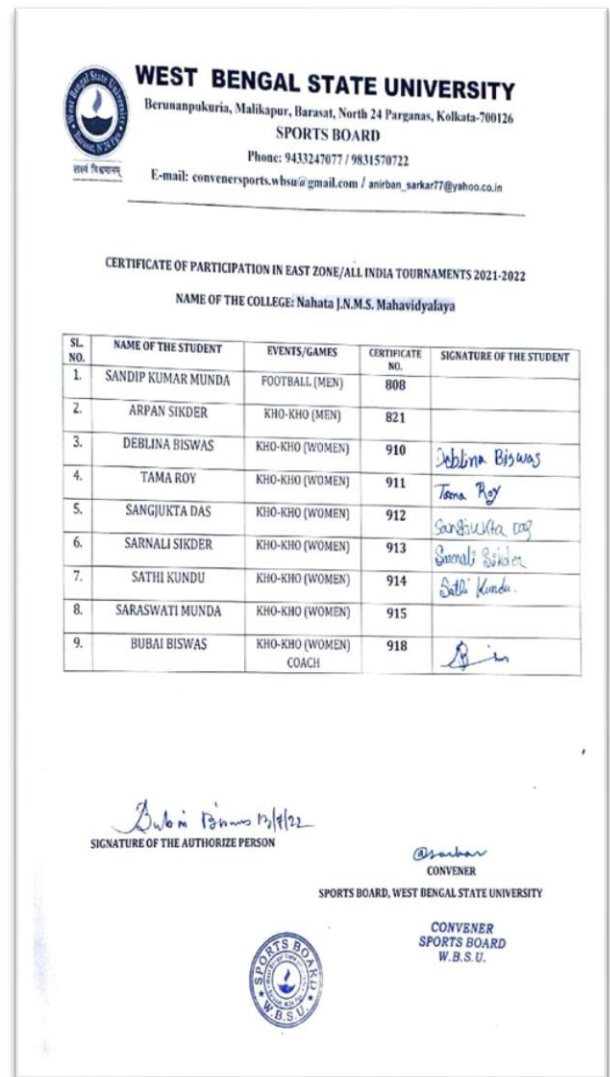 West Bengal State University
Barasat, N 24 Pgs
WEST BENGAL STATE UNIVERSITY
Berunanpukuria, Malikapur, Barasat, North 24 Parganas, Kolkata-700126
SPORTS BOARD
Phone: 9433247077 / 9831570722
E-mail: convenersports.wbsu@gmail.com / anirban_sarkar77@yahoo.co.in
CERTIFICATE OF PARTICIPATION IN EAST ZONE/ALL INDIA TOURNAMENTS 2021-2022
NAME OF THE COLLEGE: Nahata J.N.M.S. Mahavidyalaya
SL. NO. NAME OF THE STUDENT EVENTS/GAMES CERTIFICATE NO. SIGNATURE OF THE STUDENT
1. SANDIP KUMAR MUNDA FOOTBALL (MEN) 808
2. ARPAN SIKDER KHO-KHO (MEN) 821
3. DEBLINA BISWAS KHO-KHO (WOMEN) 910 Deblina Biswas
4. TAMA ROY KHO-KHO (WOMEN) 911 Tama Roy
5. SANGJUKTA DAS KHO-KHO (WOMEN) 912 Sangjukta Das
6. SARNALI SIKDER KHO-KHO (WOMEN) 913 Sarnali Sikder
7. SATHI KUNDU KHO-KHO (WOMEN) 914 Sathi Kundu.
8. SARASWATI MUNDA KHO-KHO (WOMEN) 915
9. BUBAI BISWAS KHO-KHO (WOMEN) COACH 918
Bubai Biswas 13/7/22
SIGNATURE OF THE AUTHORIZE PERSON
CONVENER
SPORTS BOARD, WEST BENGAL STATE UNIVERSITY
CONVENER
SPORTS BOARD
W.B.S.U.
SPORTS BOARD
W.B.S.U.